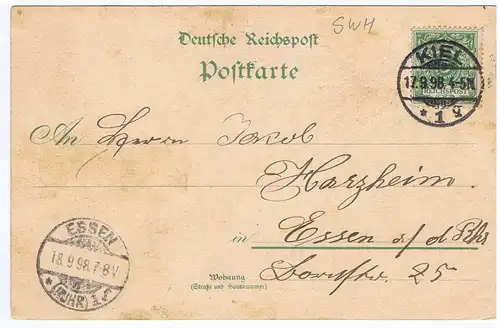 SWH
Deutsche Reichspost
Postkarte
KIEL
17.9.98 4-5N
* 1 g
REICHSPOST
An Herrn Jakob
Harzheim
in Essen a/d Rhr
ESSEN
18.9.98.7-8V
* (RUHR) 1
Wohnung
(Straße und Hausnummer)
25